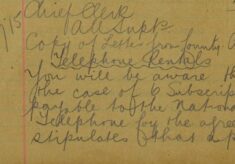 9/15
Chief Clerk
All Supts
Copy of Letter from County
Telephone Rentals
You will be aware th
the case of 6 Subscrip
payable to the Nationa
Telephone by the agree
stipulates that a p